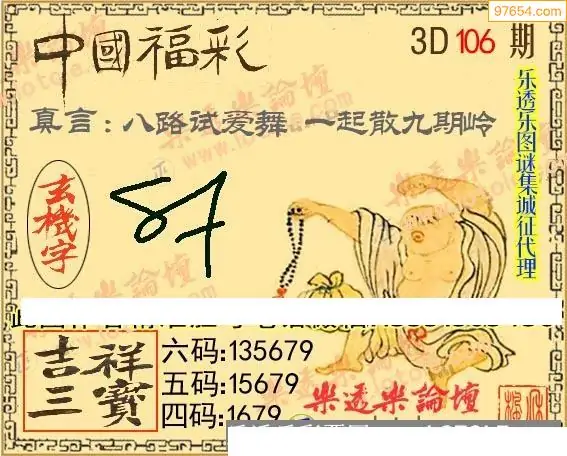 97654.com
中國福彩
3D 106 期
真言:八路试爱舞 一起散九期岭
乐透乐图谜集城征代理
玄機字
吉祥三寶
六码:135679
五码:15679
四码:1679
樂透樂論壇